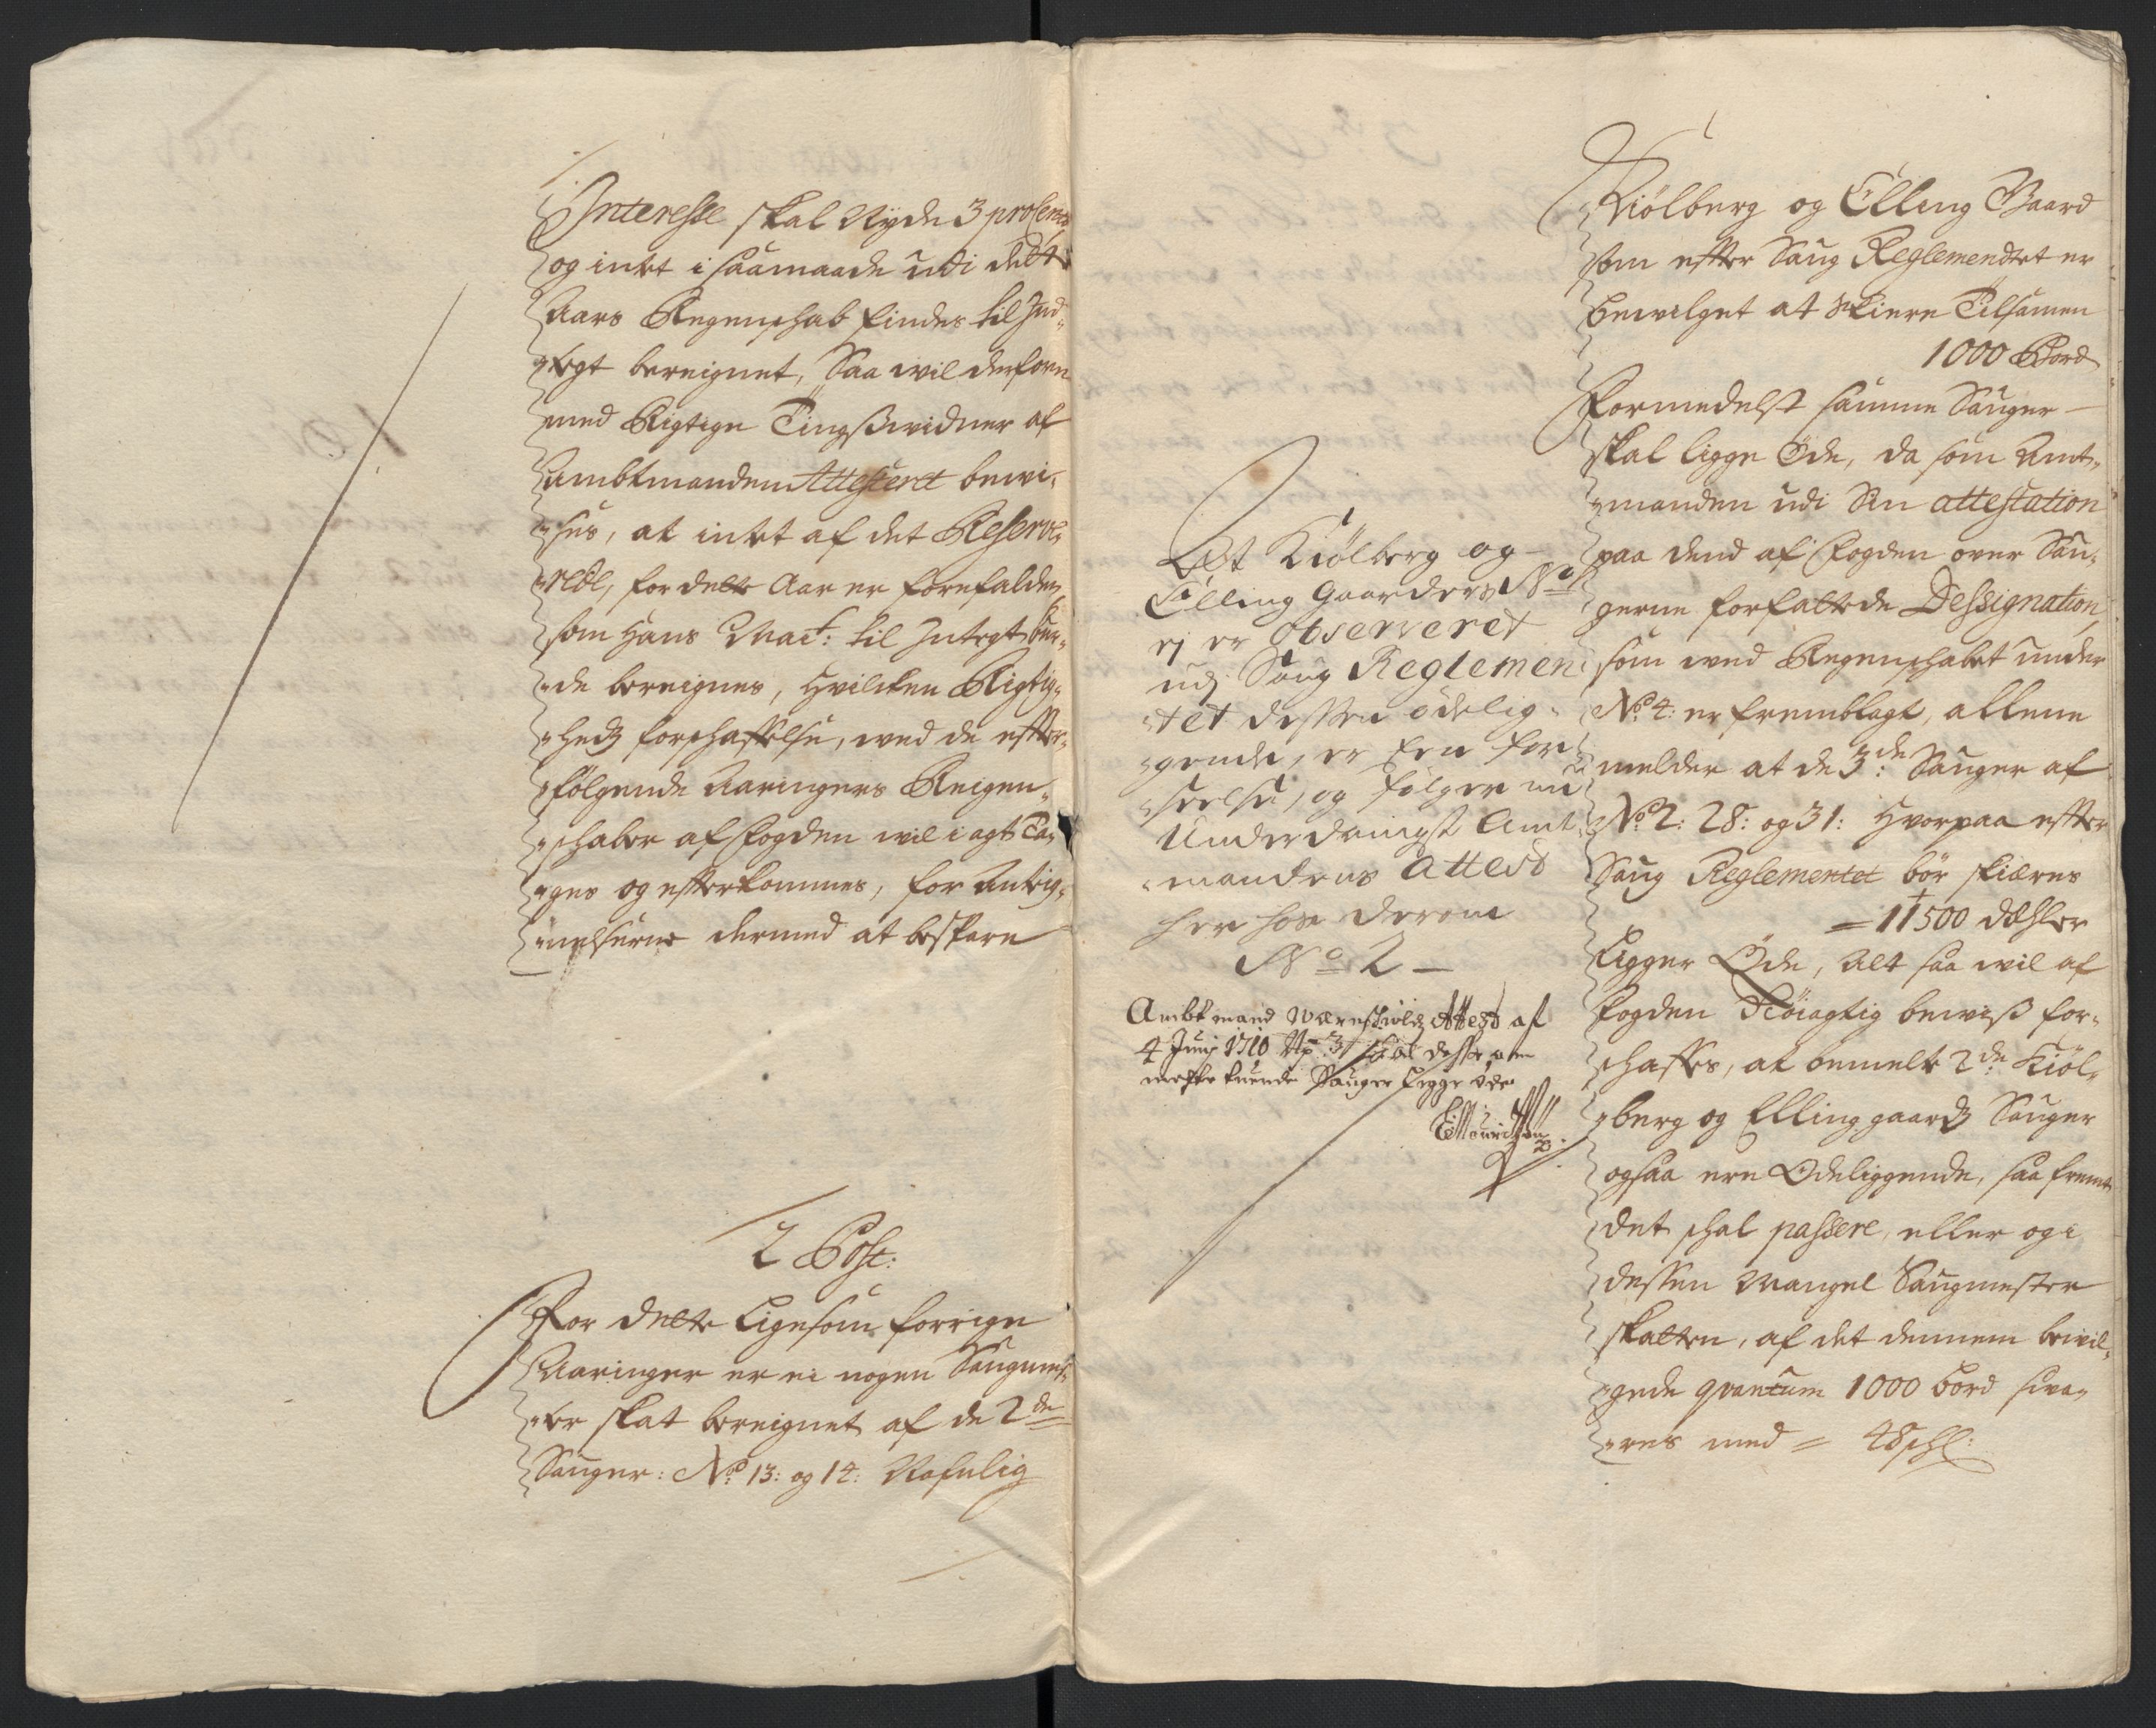 Interesse skal Nyde 3 prosento
og intet i saamaade udi dette
Aars Regenschab findes til Ind-
tegt bereignet, Saa wil derforre
med Rigtige Tingswidner af
Ambtmanden Attesteret bewi-
ses, at intet af det Reserve-
rede, for dette Aar er forefalden
som Hans Mait: til Indtegt bur-
de bereignes, Hvilcken Rigtig-
heds forschaffelse, med de effter-
følgende Aaringers Reigen-
schaber af fogden wil i agt Ta-
ges og effterkommes, for Antig-
nelserne dermed at bespare
2 Post:
For dette Ligesom forrige
Aaringer er ei nogen Saugmes-
ter skat bereignet af de 2de
Sauger: No 13: og 14: Nafnlig
At Kiølberg og
Elling Gaarders No
ej er observeret
udj Saug Reglemen
tet dessen ødelig-
gende, er een for
seelse, og følger nu
Underdanigst Amt
mandens Attest
her hos derom
No 2
Ambtmand Wernskiolds Attest af
4 Junj 1710 skal disse om
Sauger Ligge øde
Kiølberg og Elling Gaard
som effter Saug Reglementet er
bewilget at skiere Tilsamen
1000 Bord
Formedelst samme Sauger
skal ligge Øde, da som Amt-
manden udi Sin attestation
paa dend af Fogden over Sau-
gerne forfattede Dessignation,
som med Regenschabet under
No 4: er fremblagt, allene
melder at de 3de: Sauger af
No 2: 28: og 31: Hvorpaa effter
Saug Reglementet bør skiæres
= 11500 dæhler
Ligger Øde, Alt saa wil af
fogden Nöiagtig bewiis for-
schaffes, at bemelte 2de Kiöl-
berg og Ellinggaards Sauger
ogsaa ere Ødeliggende, saa fremt
det schal passere, eller og i
dessen Mangel Saugmester
skatten, af det dennem bewil-
gede qvantum 1000 bord swa-
res med = 48 sch: